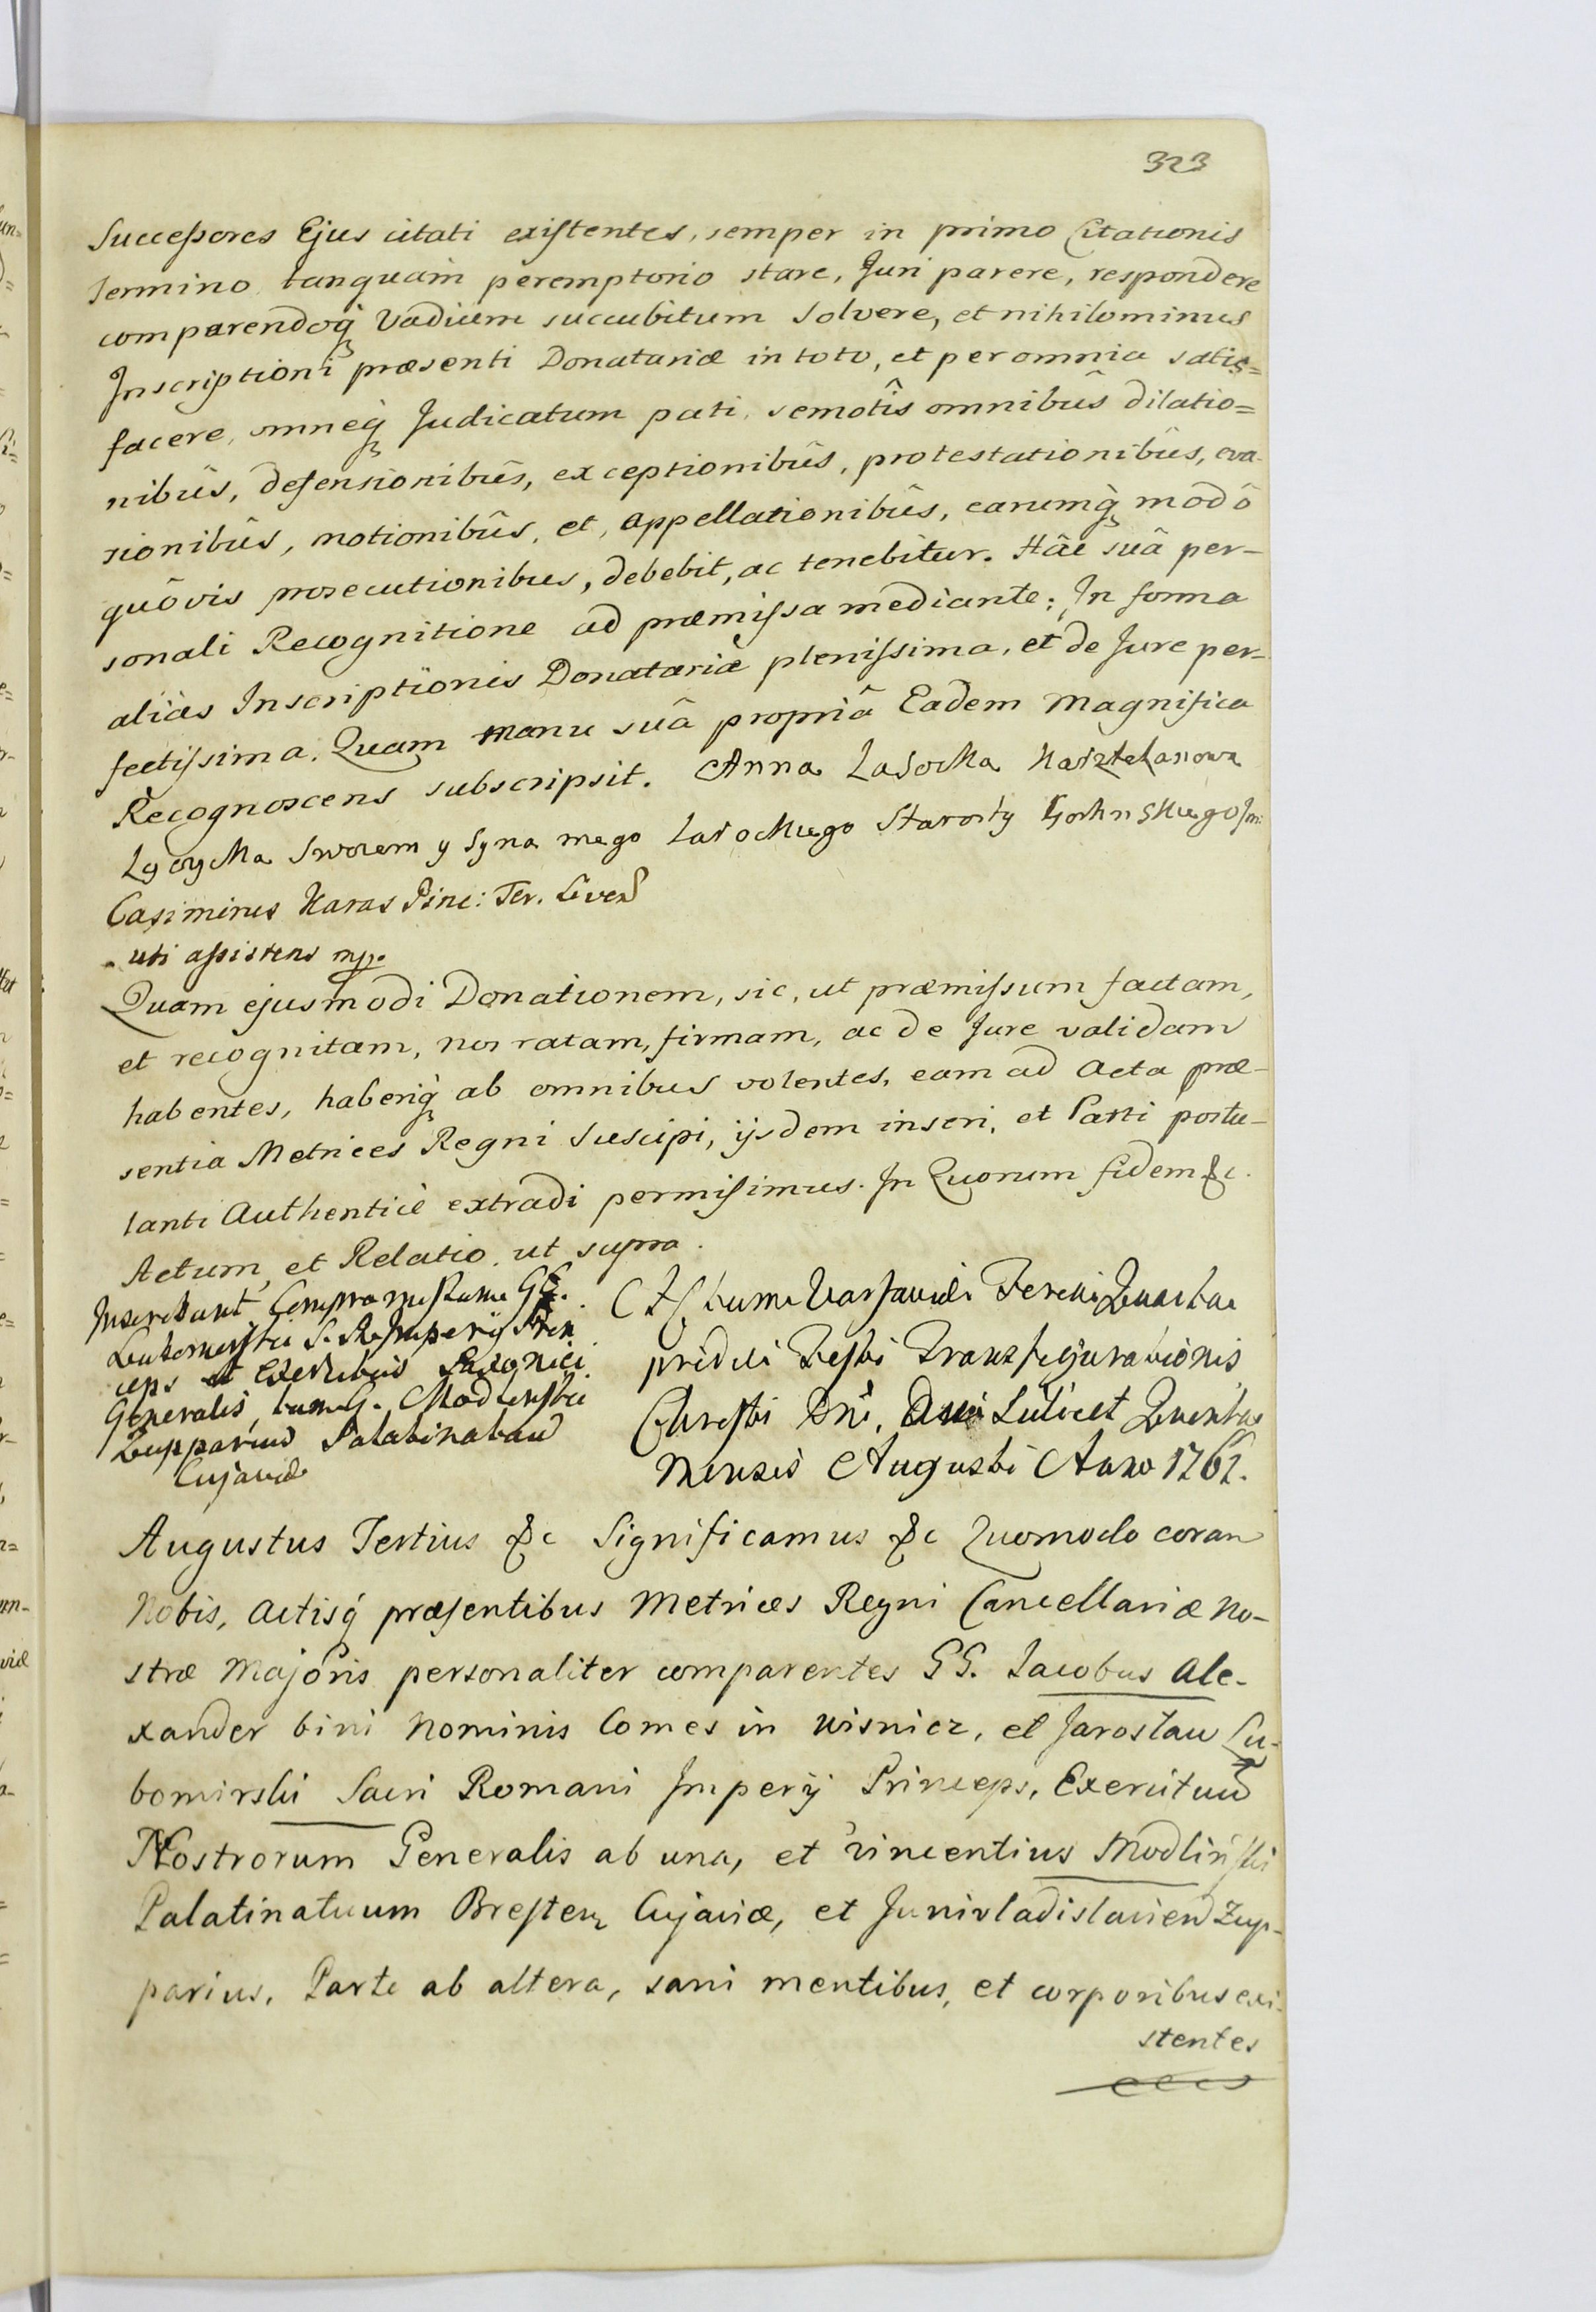 323
Successores Ejus citati existentes, semper in primo Citationis
Termino tanquam peremptorio stare, Juri parere, respondere
comparendoq̀ Vadium succubitum solvere, et nihilominus
Inscriptioni præsenti Donatariæ in toto, et per omnia satis=
facere, omneq̀ Judicatum pati, semotîs omnibûs dilatio=
nibûs, defensionibûs, exceptionibûs, protestationibûs, eva-
sionibûs, motionibûs, et, appellationibûs, earumq̀ modô
quôvis prosecutionibus, debebit, ac tenebitur. Hâc suâ per-
sonali Recognitione ad præmissa mediante; In forma
aliàs Inscriptionis Donatariæ plenissima, et de Jure per-
fectissima. Quam manu suâ propriâ Eadem Magnifica
Recognoscens subscripsit. Anna Lasocka Kasztelanowa
Lęczycka Swoiem y Syna mego Lasockiego Starosty Im:
Casimirus Karas Pinc: Ter. Liven
uti assistens mp.
Quam ejusmodi Donationem, sic, ut præmissum factam,
et recognitam, nos ratam, firmam, ac de Jure validam
habentes, haberiq̀ ab omnibus volentes, eam ad Acta præ-
sentia Metrices Regni suscipi, ijsdem inseri, et Parti postu-
lanti Authenticè extradi permisimus. In Quorum fidem &c.
Actum, et Relatio ut supra.
Inscribunt Compromissum GG.
Lubomirski S. R. Imperij Prin
ceps et Exercituus Generalis, tum G. Modlinski
Zupparius Palatinatuu
Cujaviæ
Actum Varsaviæ Feria Quarta
pridie Festi Transfigurationis
Christi Dni, Scilicet Quinta
Mensis Augusti Anno 1761.
Augustus Tertius &c Significamus &c Quomodo coram
Nobis, Actisq́ præsentibus Metrices Regni Cancellariæ No-
stræ Majoris personaliter comparentes GG. Jacobus Ale-
xander bini Nominis Comes in Wisnicz, et Jaroslau Lu-
bomirski Sacri Romani Imperij Princeps, Exercituu
Nostrorum Generalis ab una, et Vincentius Modliński
Palatinatuum Bresten Cujaviæ, et Junivladislavien Zup-
parius, Parte ab altera, sani mentibus, et corporibus exi-
stentes